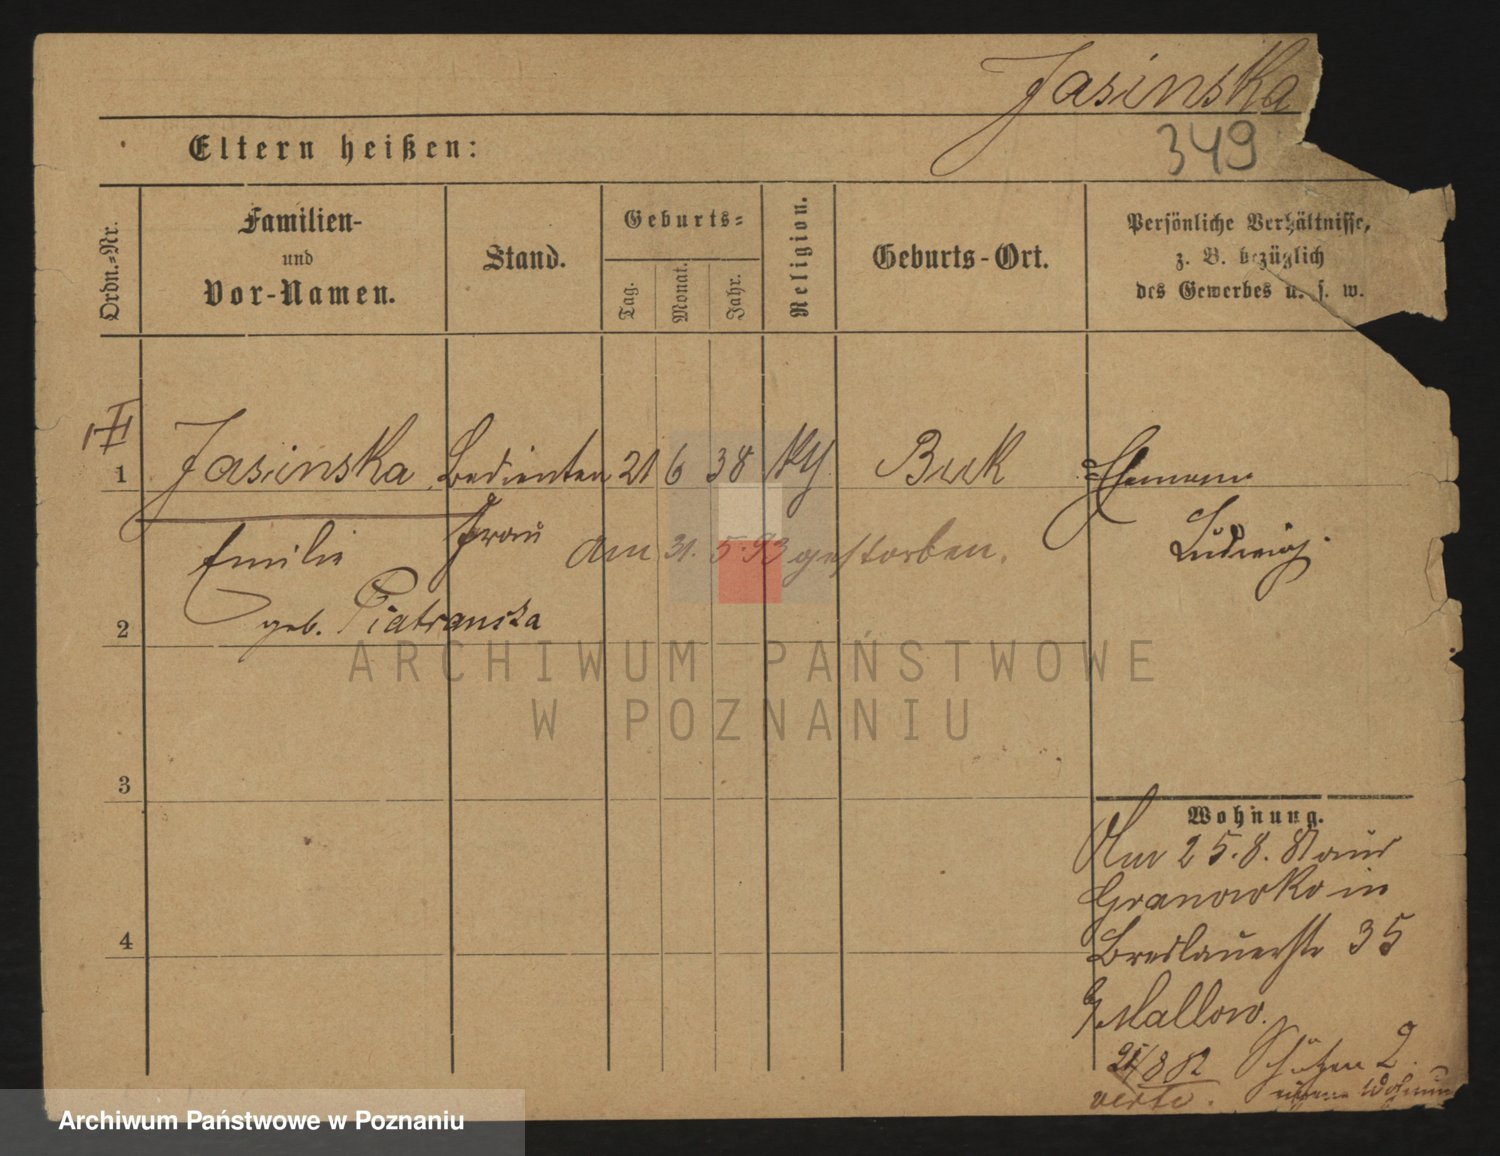 Jasinska
349
Eltern heißen:
Ordn.-Nr.
Familien-
und
Vor-Namen.
Stand.
Geburts-
Tag.
Monat.
Jahr.
Religion.
Geburts-Ort.
Persönliche Verhältnisse,
z. B. bezüglich
des Gewerbes u. s. w.
II
1 Jasinska Bedienten 21 6 38 Buk Ehemann
Emilie frau am 31. 5. 93 gestorben. Ludwig.
2 geb. Piatranska
ARCHIWUM PAŃSTWOWE
W POZNANIU
3
Wohnung.
Am 25. 8. 81 aus
Granowko in
Breslauerstr 35
b/ Mallow.
4
21/8 82 Schützen 2.
verte.
Archiwum Państwowe w Poznaniu